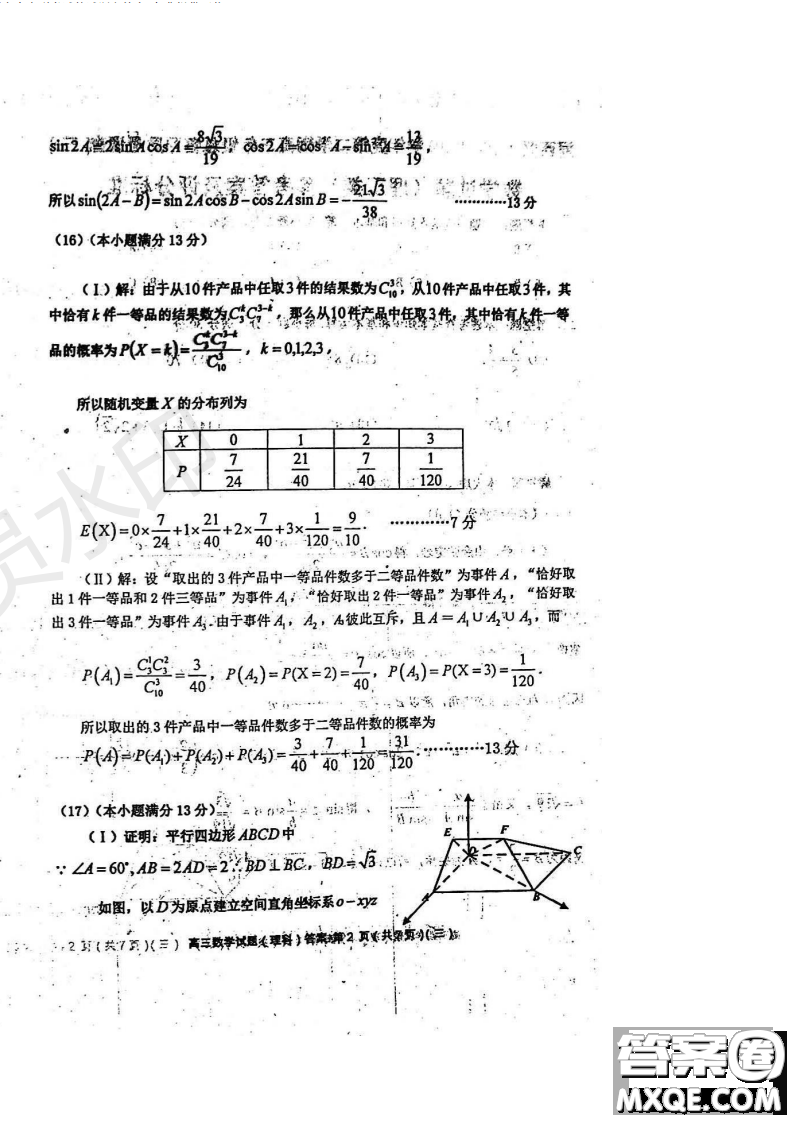 sin2A=2sinAcosA=8√3/19, cos2A=cos²A-sin²A=13/19,
所以sin(2A-B)=sin2AcosB-cos2AsinB=-21√3/38 …………13分
(16)(本小题满分13分)
(Ⅰ)解:由于从10件产品中任取3件的结果数为C₁₀³,从10件产品中任取3件,其
中恰有k件一等品的结果数为C₃ᵏC₇³⁻ᵏ,那么从10件产品中任取3件,其中恰有k件一等
品的概率为P(X=k)=C₃ᵏC₇³⁻ᵏ/C₁₀³, k=0,1,2,3,
所以随机变量X的分布列为
X 0 1 2 3
P 7/24 21/40 7/40 1/120
E(X)=0×7/24+1×21/40+2×7/40+3×1/120=9/10. …………7分
(Ⅱ)解:设“取出的3件产品中一等品件数多于二等品件数”为事件A,“恰好取
出1件一等品和2件三等品”为事件A₁,“恰好取出2件一等品”为事件A₂,“恰好取
出3件一等品”为事件A₃.由于事件A₁,A₂,A₃彼此互斥,且A=A₁∪A₂∪A₃,而
P(A₁)=C₃¹C₃²/C₁₀³=3/40, P(A₂)=P(X=2)=7/40, P(A₃)=P(X=3)=1/120.
所以取出的3件产品中一等品件数多于二等品件数的概率为
P(A)=P(A₁)+P(A₂)+P(A₃)=3/40+7/40+1/120=31/120. …………13分
(17)(本小题满分13分)
(Ⅰ)证明:平行四边形ABCD中
∵∠A=60°,AB=2AD=2∴BD⊥BC, BD=√3
如图,以D为原点建立空间直角坐标系o-xyz
E F
C
A B
高三数学试题(理科)答案 第2页(共7页)(三)
员水印
答案圈
MXQE.COM